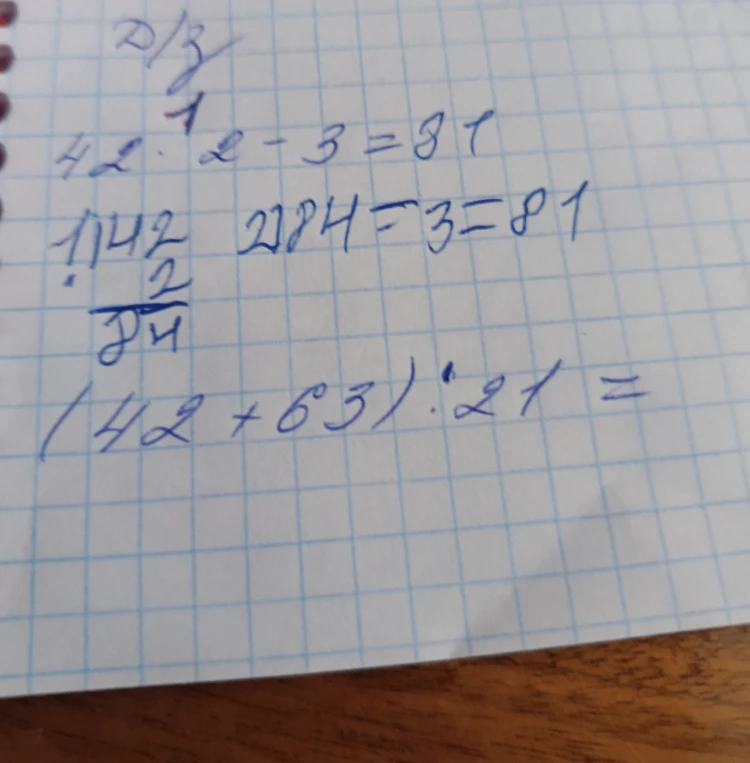 Д/з
1
42 · 2 - 3 = 81
1) 42 2) 84 - 3 = 81
· 2
84
(42 + 63) : 21 =